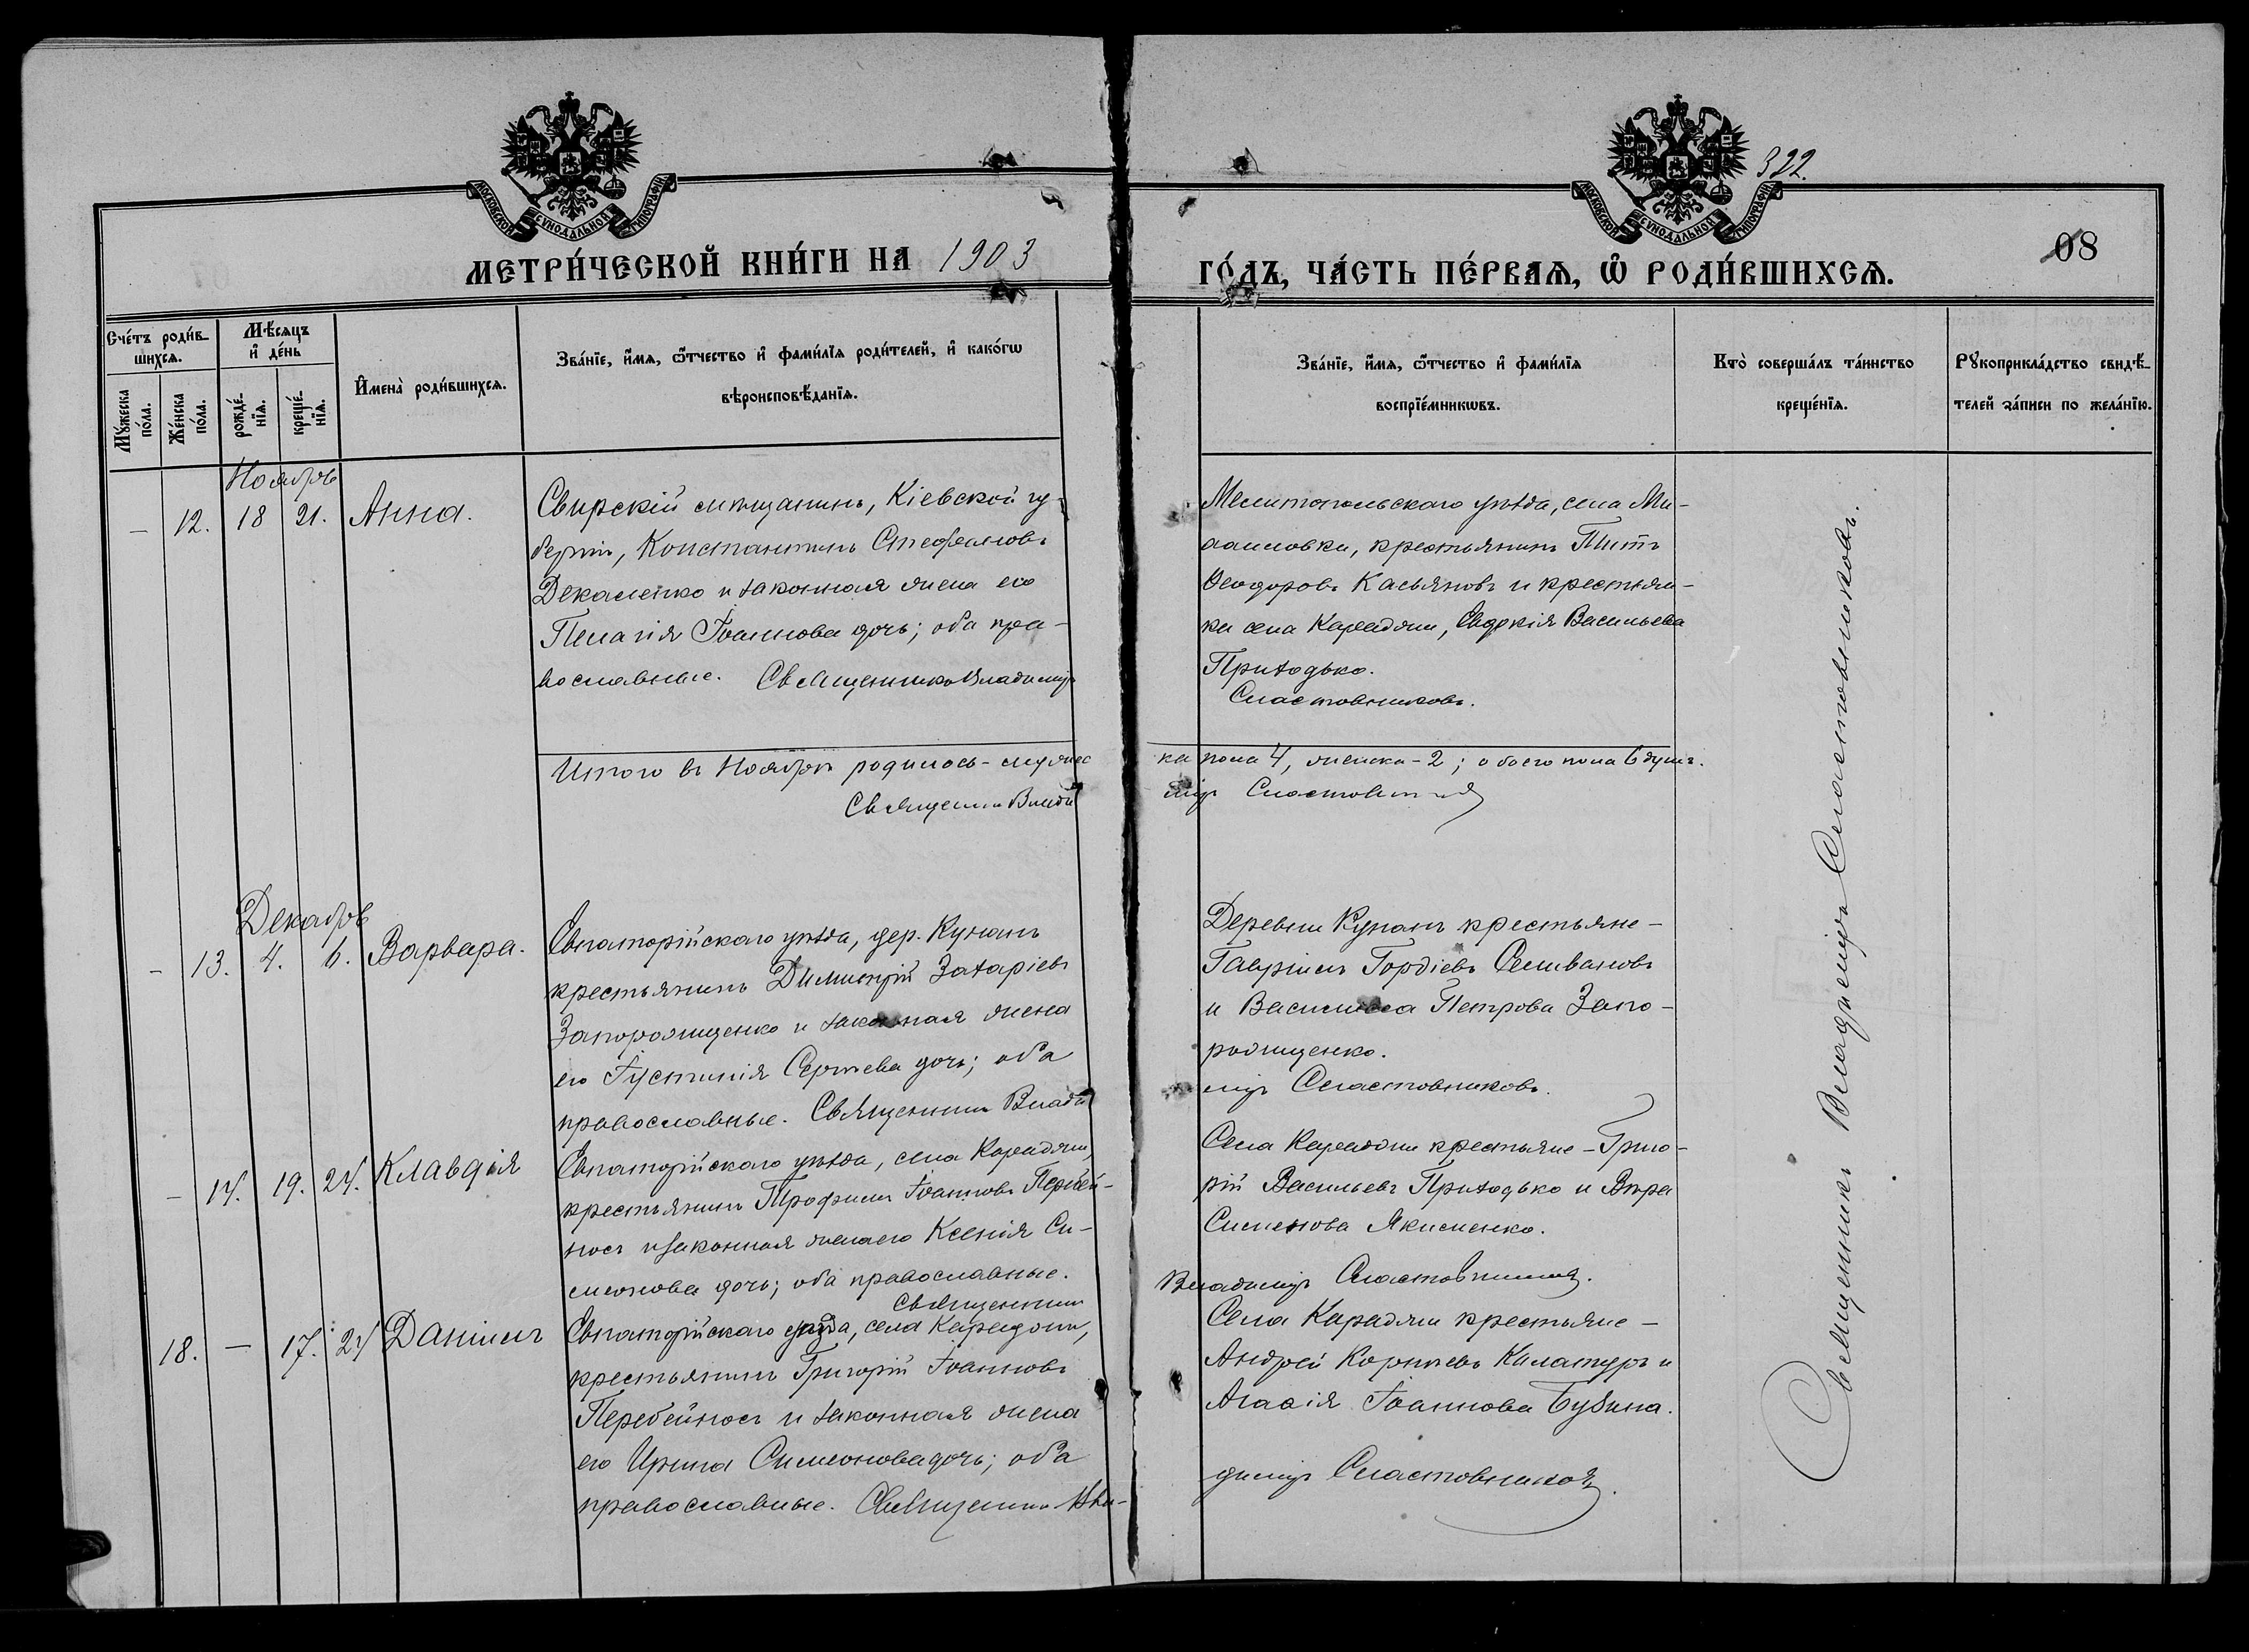 322.
МОСКОВСКОЙ СѴНОДАЛЬНОЙ ТИПОГРАФІИ
МОСКОВСКОЙ СѴНОДАЛЬНОЙ ТИПОГРАФІИ
08
МЕТРИ́ЧЕСКОЙ КНИ́ГИ НА 1903
ГО́ДЪ, ЧА́СТЬ ПЕ́РВАѦ, Ѡ РОДИ́ВШИХСѦ.
Сче́тъ роди́в-
шихсѧ.
Мѣ́сѧцъ
и҆ де́нь
Мꙋ́жеска
по́ла.
Же́нска
по́ла.
рожде́-
нїѧ.
креще́-
нїѧ.
И҆мена̀ роди́вшихсѧ.
Зва́нїе, и҆́мѧ, ѻ҆́тчество и҆ фами́лїѧ роди́телей, и҆ како́гѡ
вѣроисповѣ́данїѧ.
Зва́нїе, и҆́мѧ, ѻ҆́тчество и҆ фами́лїѧ
воспрїе́мникѡвъ.
Кто̀ соверша́лъ та́инство
креще́нїѧ.
Рꙋкоприкла́дство свидѣ́-
телей за́писи по жела́нїю.
Ноябрь
— 12. 18 21. Анна.
Свирскій мѣщанинъ, Кіевской гу-
берніи, Константинъ Стефановъ
Декаленко и законная жена его
Пелагія Іоаннова дочь; оба пра-
вославные. Священникъ Владимір
Мелитопольскаго уѣзда, села Ми-
хайловки, крестьянинъ Титъ
Ѳеодоровъ Касьяновъ и крестьян-
ка села Караджи, Евдокія Васильева
Приходько.
Сластовниковъ.
Итого въ Ноябрѣ родилось - мужес
ка пола 4, женска - 2; обоего пола 6 душъ.
Священникъ Влади
міръ
Декабрь
— 13. 4. 6. Варвара.
Евпаторійскаго уѣзда, дер. Кунанъ
крестьянинъ Димитрій Захаріевъ
Запорожщенко и законная жена
его Іустинія Сергіева дочь; оба
православные. Священникъ Влади
Деревни Кунанъ крестьяне -
Гавріилъ Гордіевъ Селивановъ
и Василисса Петрова Запо-
рожщенко.
міръ Сластовниковъ.
— 14. 19. 24. Клавдія
Евпаторійскаго уѣзда, села Караджи,
крестьянинъ Трофимъ Іоанновъ Перебей-
носъ и законная жена его Ксенія Си-
меонова дочь; оба православные.
Священникъ
Села Караджи крестьяне - Григо-
рій Васильевъ Приходько и Вѣра
Симеонова Якименко.
Владиміръ Сластовниковъ.
18. — 17. 24 Даніилъ
Евпаторійскаго уѣзда, села Караджи,
крестьянинъ Григорій Іоанновъ
Перебейносъ и законная жена
его Ирина Симеонова дочь; оба
православные. Священникъ Вла-
Села Караджи крестьяне -
Андрей Корніевъ Каламуръ и
Агафія Іоаннова Бубина.
диміръ Сластовниковъ.
Священникъ Владиміръ Сластовниковъ.